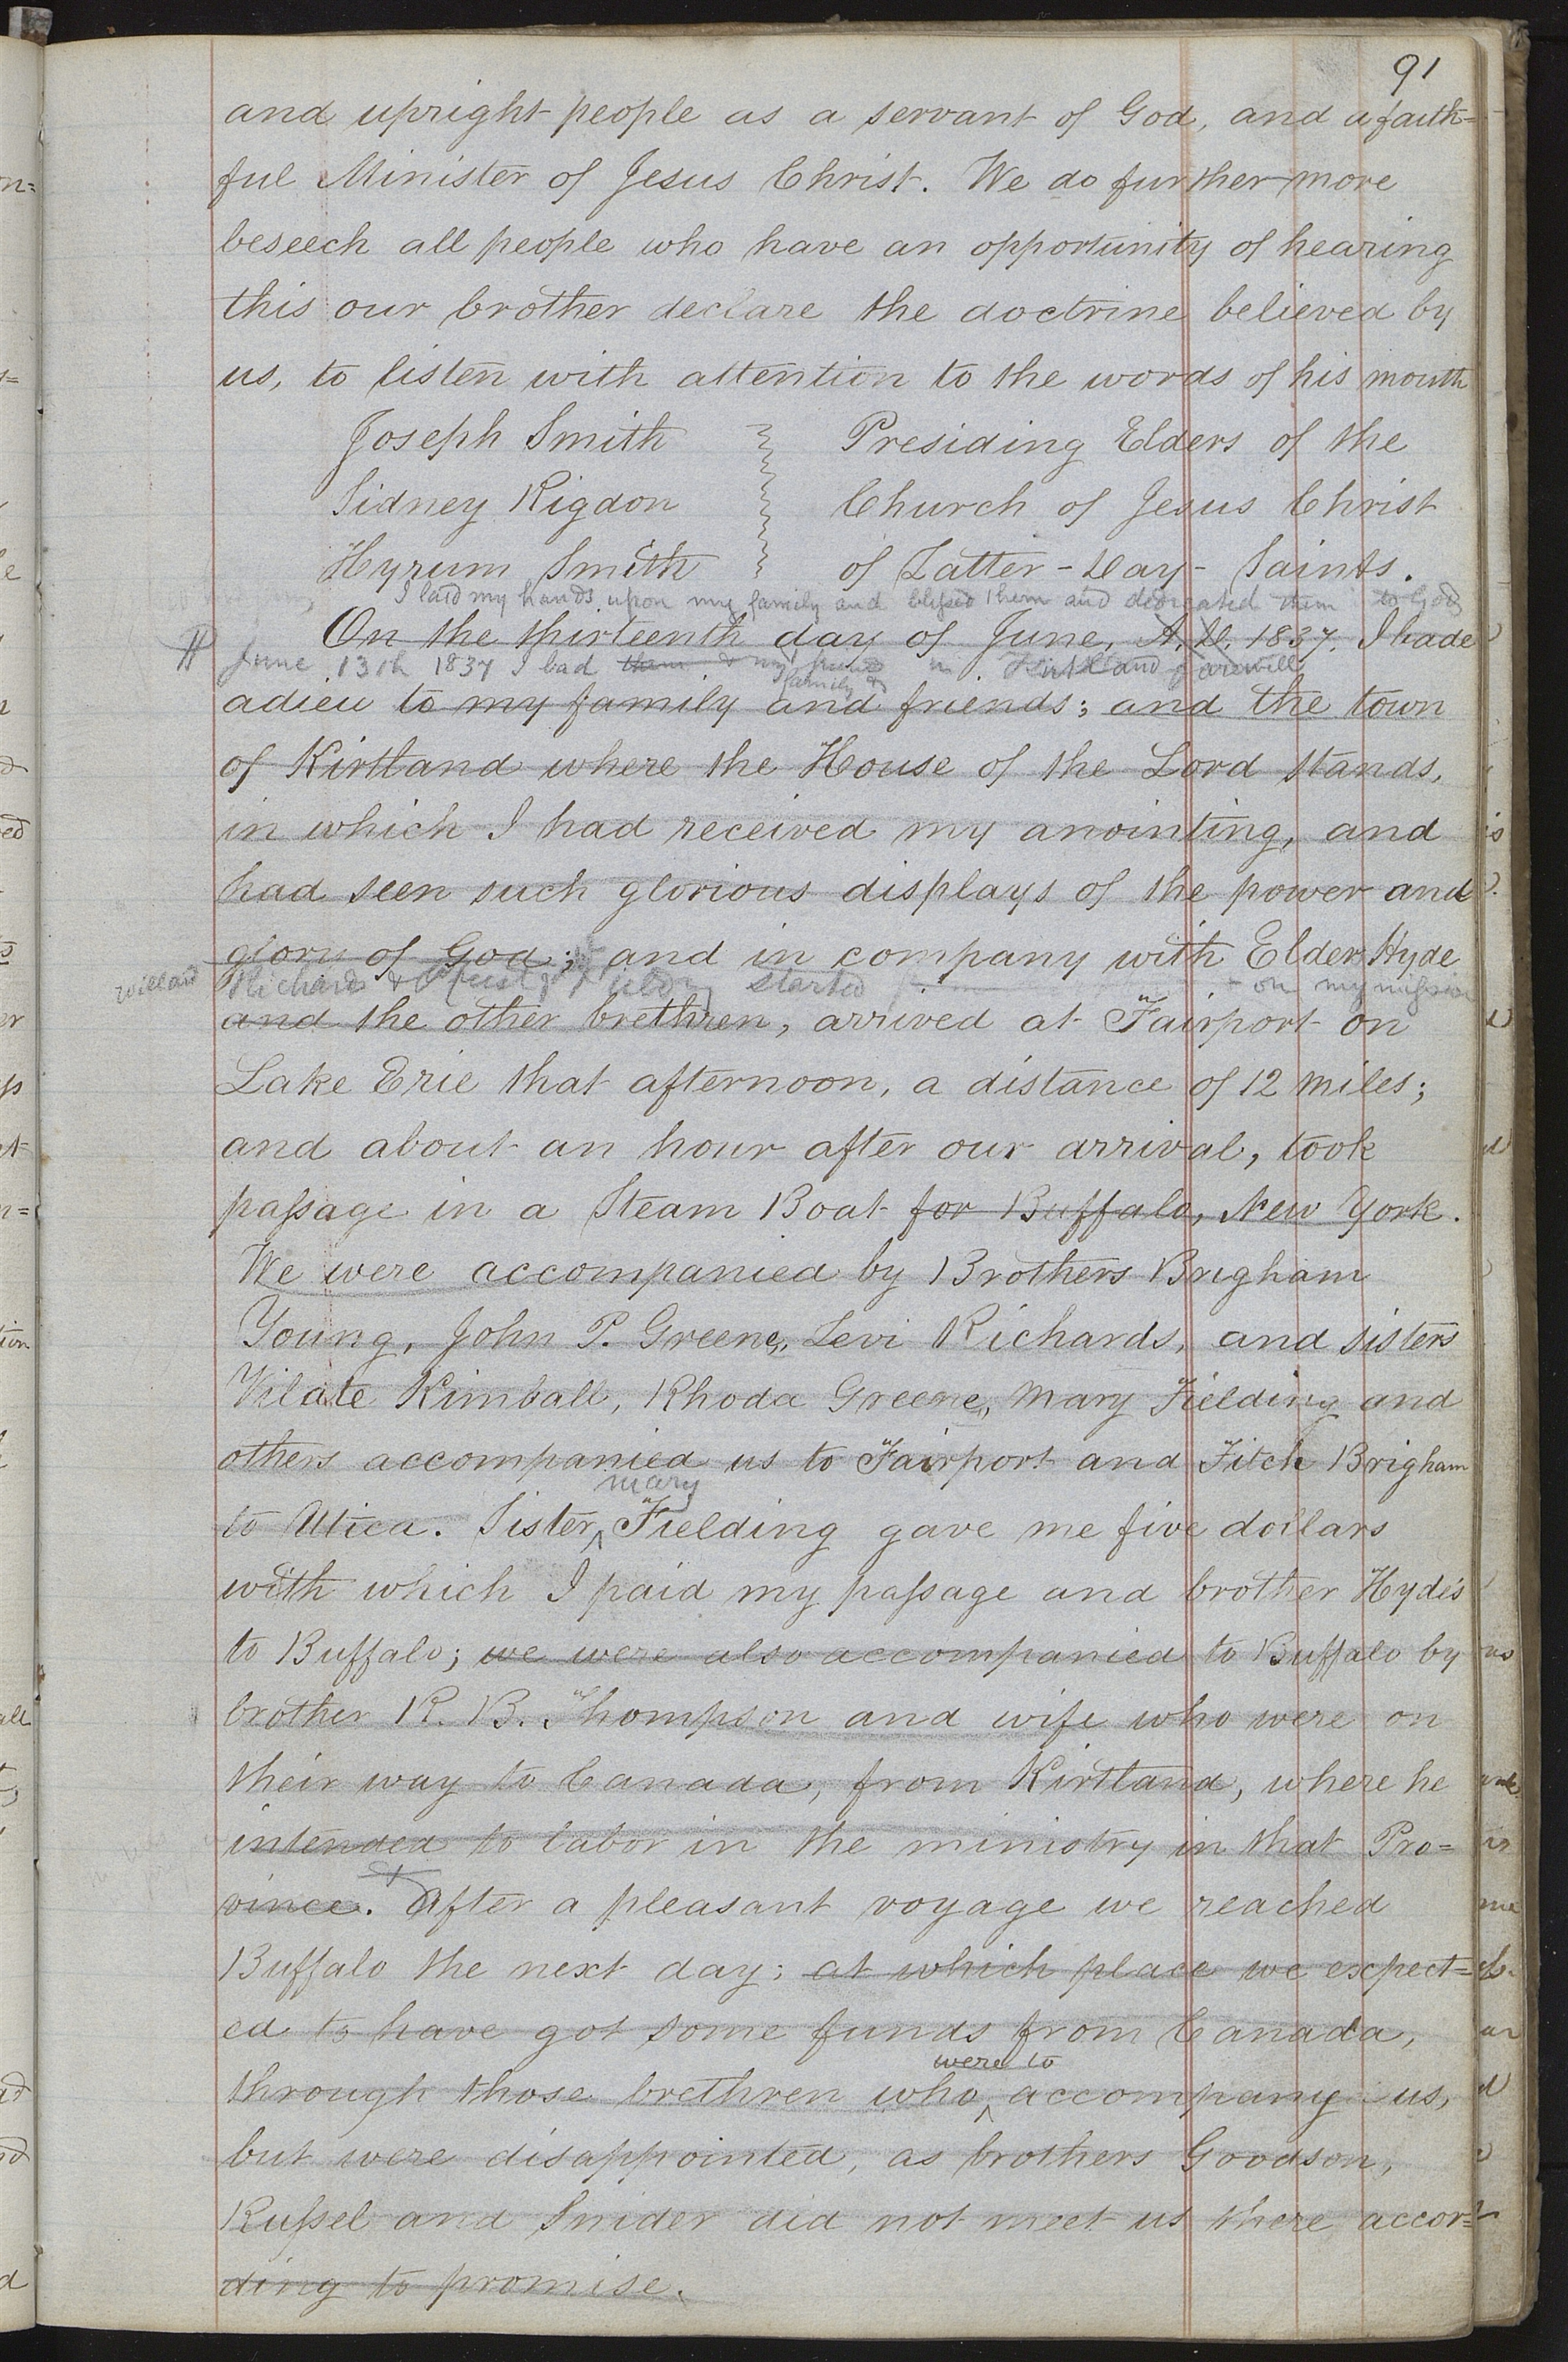 91
and upright people as a servant of God, and a faith=
ful Minister of Jesus Christ. We do further more
beseech all people who have an opportunity of hearing
this our brother declare the doctrine believed by
us, to listen with attention to the words of his mouth
Joseph Smith Presiding Elders of the
Sidney Rigdon Church of Jesus Christ
Hyrum Smith of Latter-Day-Saints.
I laid my hands upon my family and blessed them and dedicated them to God
On the thirteenth day of June, A.D. 1837. I bade
June 13th 1837 I bad them & my friends in Kirtland farewill
family &
adieu to my family and friends; and the town
of Kirtland where the House of the Lord stands,
in which I had received my anointing, and
had seen such glorious displays of the power and
glory of God; and in company with Elder Hyde
Willard Richards & Joseph Fielding started on my mission
and the other brethren, arrived at Fairport on
Lake Erie that afternoon, a distance of 12 miles;
and about an hour after our arrival, took
passage in a Steam Boat for Buffalo, New York.
We were accompanied by Brothers Brigham
Young, John P. Greene, Levi Richards, and sisters
Vilate Kimball, Rhoda Greene, Mary Fielding and
others accompanied us to Fairport and Fitch Brigham
to Utica. Sister ^ Fielding gave me five dollars
mary
with which I paid my passage and brother Hyde's
to Buffalo; we were also accompanied to Buffalo by
brother R. B. Thompson and wife who were on
their way to Canada, from Kirtland, where he
intended to labor in the ministry in that Pro=
vince. After a pleasant voyage we reached
Buffalo the next day; at which place we expect=
ed to have got some funds from Canada,
were to
through those brethren who ^ accompany us,
but were disappointed, as brothers Goodson,
Russel and Snider did not meet us there accor=
ding to promise.